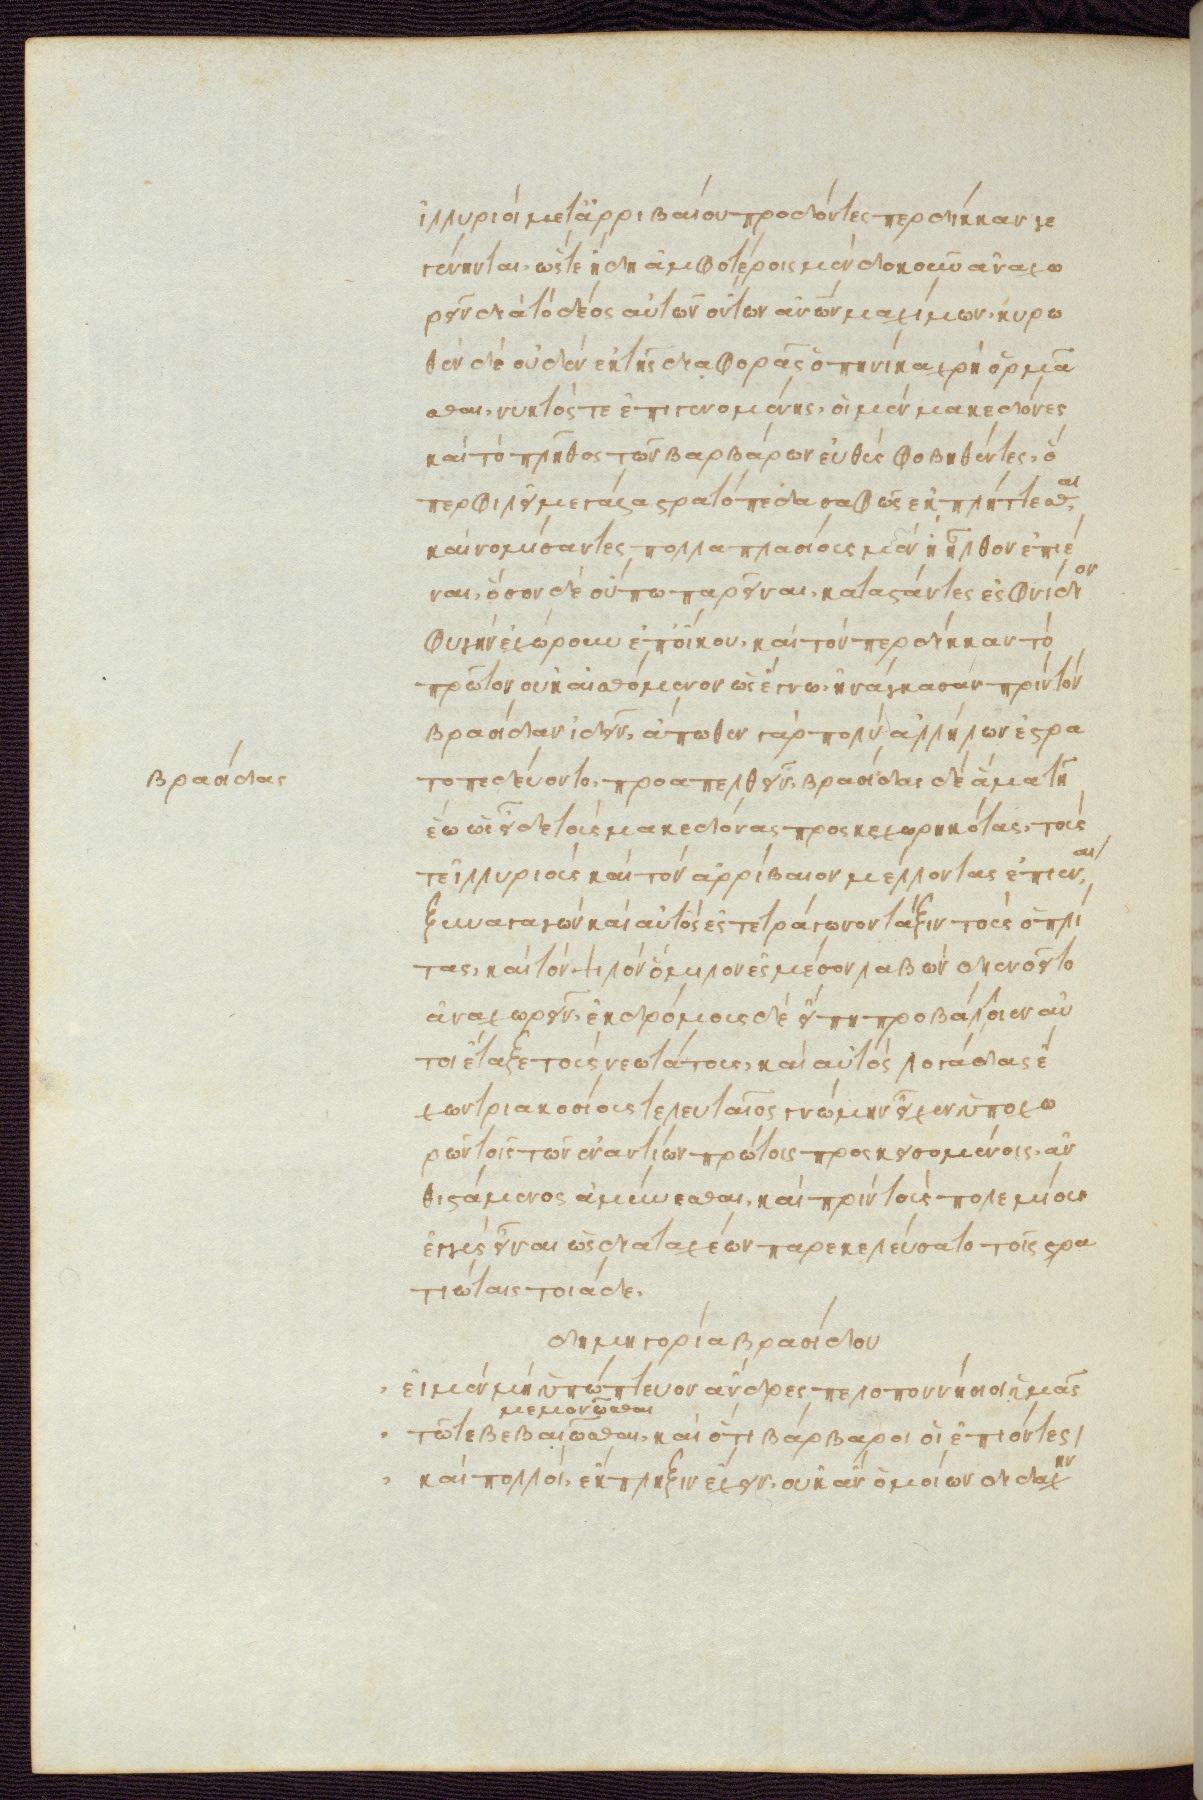 ἰλλυριοὶ μετ' ἀρριβαίου προδόντες περδίκκαν γε
γένηνται. ὥστε ἤδη ἀμφοτέροις μὲν δοκοῦν ἀναχω
ρεῖν διὰ τὸ δέος αὐτῶν ὄντων ἀνῶν μαχίμων. κυρω
θὲν δὲ οὐδὲν ἐκ τῆς διαφορᾶς ὁπηνίκα χρὴ ὁρμᾶ
σθαι. νυκτός τε ἐπιγενομένης. οἱ μὲν μακεδόνες
καὶ τὸ πλῆθος τῶν βαρβάρων εὐθὺς φοβηθέντες. ὅ
περ φιλεῖ μεγάλα στρατόπεδα σαφῶς ἐκπλήττεσθαι.
καὶ νομίσαντες πολλαπλασίους μὲν ἢ ἦλθον ἐπιέ
ναι. ὅσον δὲ οὔπω παρεῖναι. καταστάντες ἐς φνίδιον
φυγὴν ἐχώρουν ἐπ' οἴκου. καὶ τὸν περδίκκαν τὸ
πρῶτον οὐκ αἰσθόμενον ὡς ἔγνω. ἠνάγκασαν πρὶν τὸν
βρασίδαν ἰδεῖν. ἄπωθεν γὰρ πολὺ ἀλλήλων ἐστρα
βρασίδας
τοπεδεύοντο. προαπελθεῖν. βρασίδας δὲ ἅμα τῆ
ἕω ὡς εἶδε τοὺς μακεδόνας προσκεχωρηκότας. τοὺς
τε ἰλλυριοὺς καὶ τὸν ἀρρίβαιον μέλλοντας ἐπιέναι.
ξυναγαγὼν καὶ αὐτὸς ἐς τετράγωνον τάξιν τοὺς ὁπλί
τας. καὶ τὸν ψιλὸν ὅμιλον ἐς μέσον λαβὼν διενοεῖτο
ἀναχωρεῖν. ἐκδρόμους δὲ εἴ πη προβάλοιεν αὐ
τοῖ ἔταξε τοὺς νεωτάτους. καὶ αὐτὸς λογάδας ἔ
χων τριακοσίους τελευταῖος γνώμην εἶχεν ὑποχω
ρῶν τοῖς τῶν ἐναντίων πρώτοις προσκεισομένοις. ἀν
θιστάμενος ἀμύνεσθαι. καὶ πρὶν τοὺς πολεμίους
ἐγγὺς εἶναι ὡς διὰ ταχέων παρεκελεύσατο τοῖς στρα
τιώταις τοιάδε.
δημηγορία βρασίδου
εἰ μὲν μὴ ὑπώπτευον ἄνδρες πελοποννήσιοι ὑμᾶς
μεμονῶσθαι
τῶ τε βεβαιῶσθαι. καὶ ὅτι βάρβαροι οἱ ἐπιόντες
καὶ πολλοί. ἔκπληξιν ἔχειν. οὐκ ἂν ὁμοίων διδαχὴν